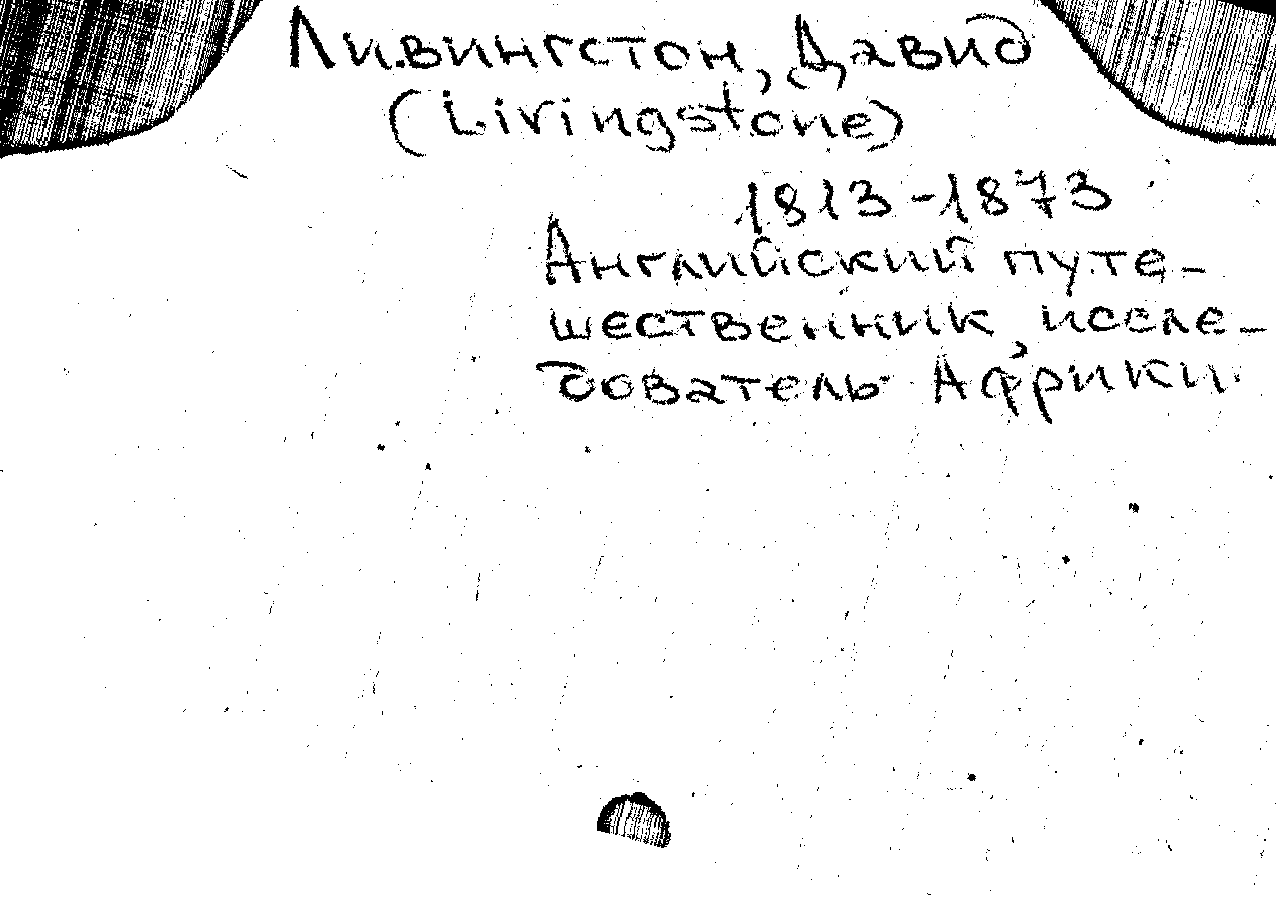 Ливингстон, Давид
(Livingstone)
1813-1873
Английский путе-
шественник, иссле-
дователь Африки.